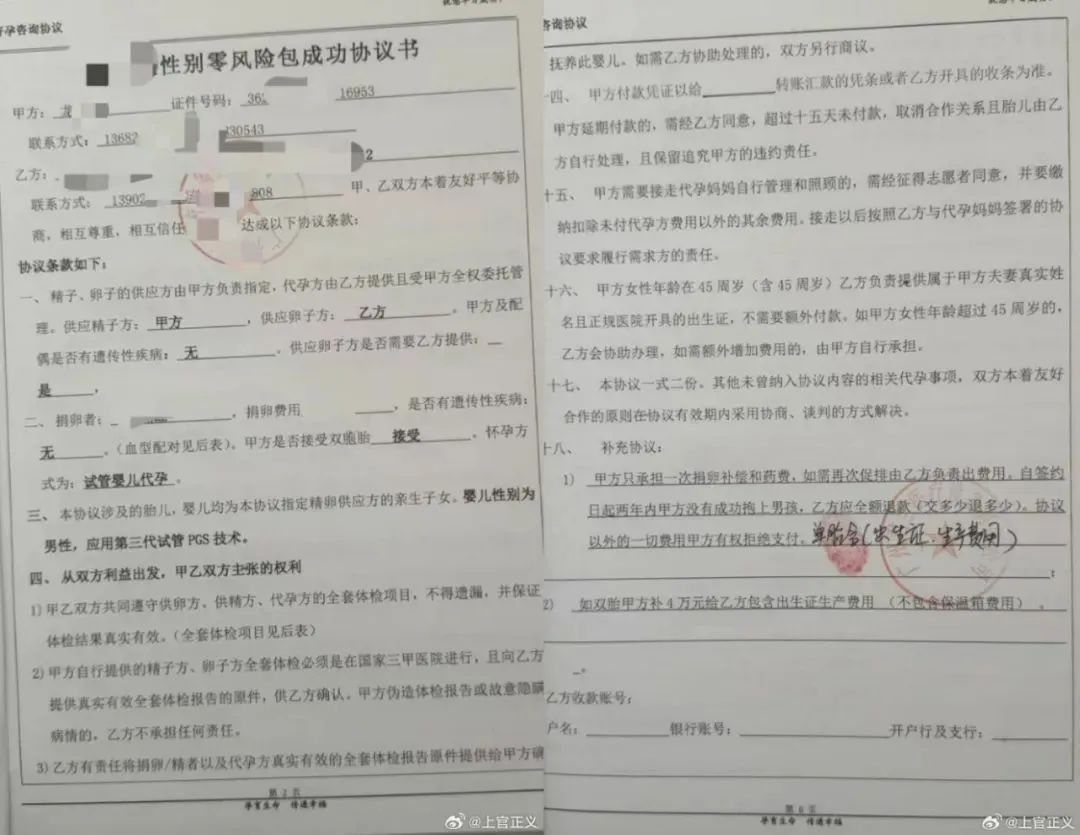 孕咨询协议
性别零风险包成功协议书
甲方：龙 证件号码：362 16953
联系方式：13682 130543
乙方： 2
联系方式：13902 808 甲、乙双方本着友好平等协
商，相互尊重，相互信任 达成以下协议条款：
协议条款如下：
一、精子、卵子的供应方由甲方负责指定，代孕方由乙方提供且受甲方全权委托管
理。供应精子方：甲方，供应卵子方：乙方。甲方及配
偶是否有遗传性疾病：无。供应卵子方是否需要乙方提供：
是，
二、捐卵者： ，捐卵费用 ，是否有遗传性疾病：
无。（血型配对见后表）。甲方是否接受双胞胎 接受。怀孕方
式为：试管婴儿代孕。
三、本协议涉及的胎儿，婴儿均为本协议指定精卵供应方的亲生子女。婴儿性别为
男性，应用第三代试管 PGS 技术。
四、从双方利益出发，甲乙双方主张的权利
1) 甲乙双方共同遵守供卵方、供精方、代孕方的全套体检项目，不得遗漏，并保证
体检结果真实有效。（全套体检项目见后表）
2) 甲方自行提供的精子方、卵子方全套体检必须是在国家三甲医院进行，且向乙方
提供真实有效全套体检报告的原件，供乙方确认。甲方伪造体检报告或故意隐瞒
病情的，乙方不承担任何责任。
3) 乙方有责任将捐卵/精者以及代孕方真实有效的全套体检报告原件提供给甲方确
第 2 页
孕育生命 传递幸福
咨询协议
抚养此婴儿。如需乙方协助处理的，双方另行商议。
十四、 甲方付款凭证以给 转账汇款的凭条或者乙方开具的收条为准。
甲方延期付款的，需经乙方同意，超过十五天未付款，取消合作关系且胎儿由乙
方自行处理，且保留追究甲方的违约责任。
十五、 甲方需要接走代孕妈妈自行管理和照顾的，需经征得志愿者同意，并要缴
纳扣除未付代孕方费用以外的其余费用。接走以后按照乙方与代孕妈妈签署的协
议要求履行需求方的责任。
十六、 甲方女性年龄在 45 周岁（含 45 周岁）乙方负责提供属于甲方夫妻真实姓
名且正规医院开具的出生证，不需要额外付款。如甲方女性年龄超过 45 周岁的，
乙方会协助办理，如需额外增加费用的，由甲方自行承担。
十七、 本协议一式二份。其他未曾纳入协议内容的相关代孕事项，双方本着友好
合作的原则在协议有效期内采用协商、谈判的方式解决。
十八、 补充协议：
1) 甲方只承担一次捐卵补偿和药费，如需再次促排由乙方负责出费用。自签约
日起两年内甲方没有成功抱上男孩，乙方应全额退款（交多少退多少）。协议
以外的一切费用甲方有权拒绝支付。单胎含（出生证、生产费用）
；
2) 如双胎甲方补 4 万元给乙方包含出生证生产费用 （不包含保温箱费用）。
。
乙方收款账号：
户名： 银行账号： 开户行及支行：
第 6 页
孕育生命 传递幸福
@上官正义
@上官正义